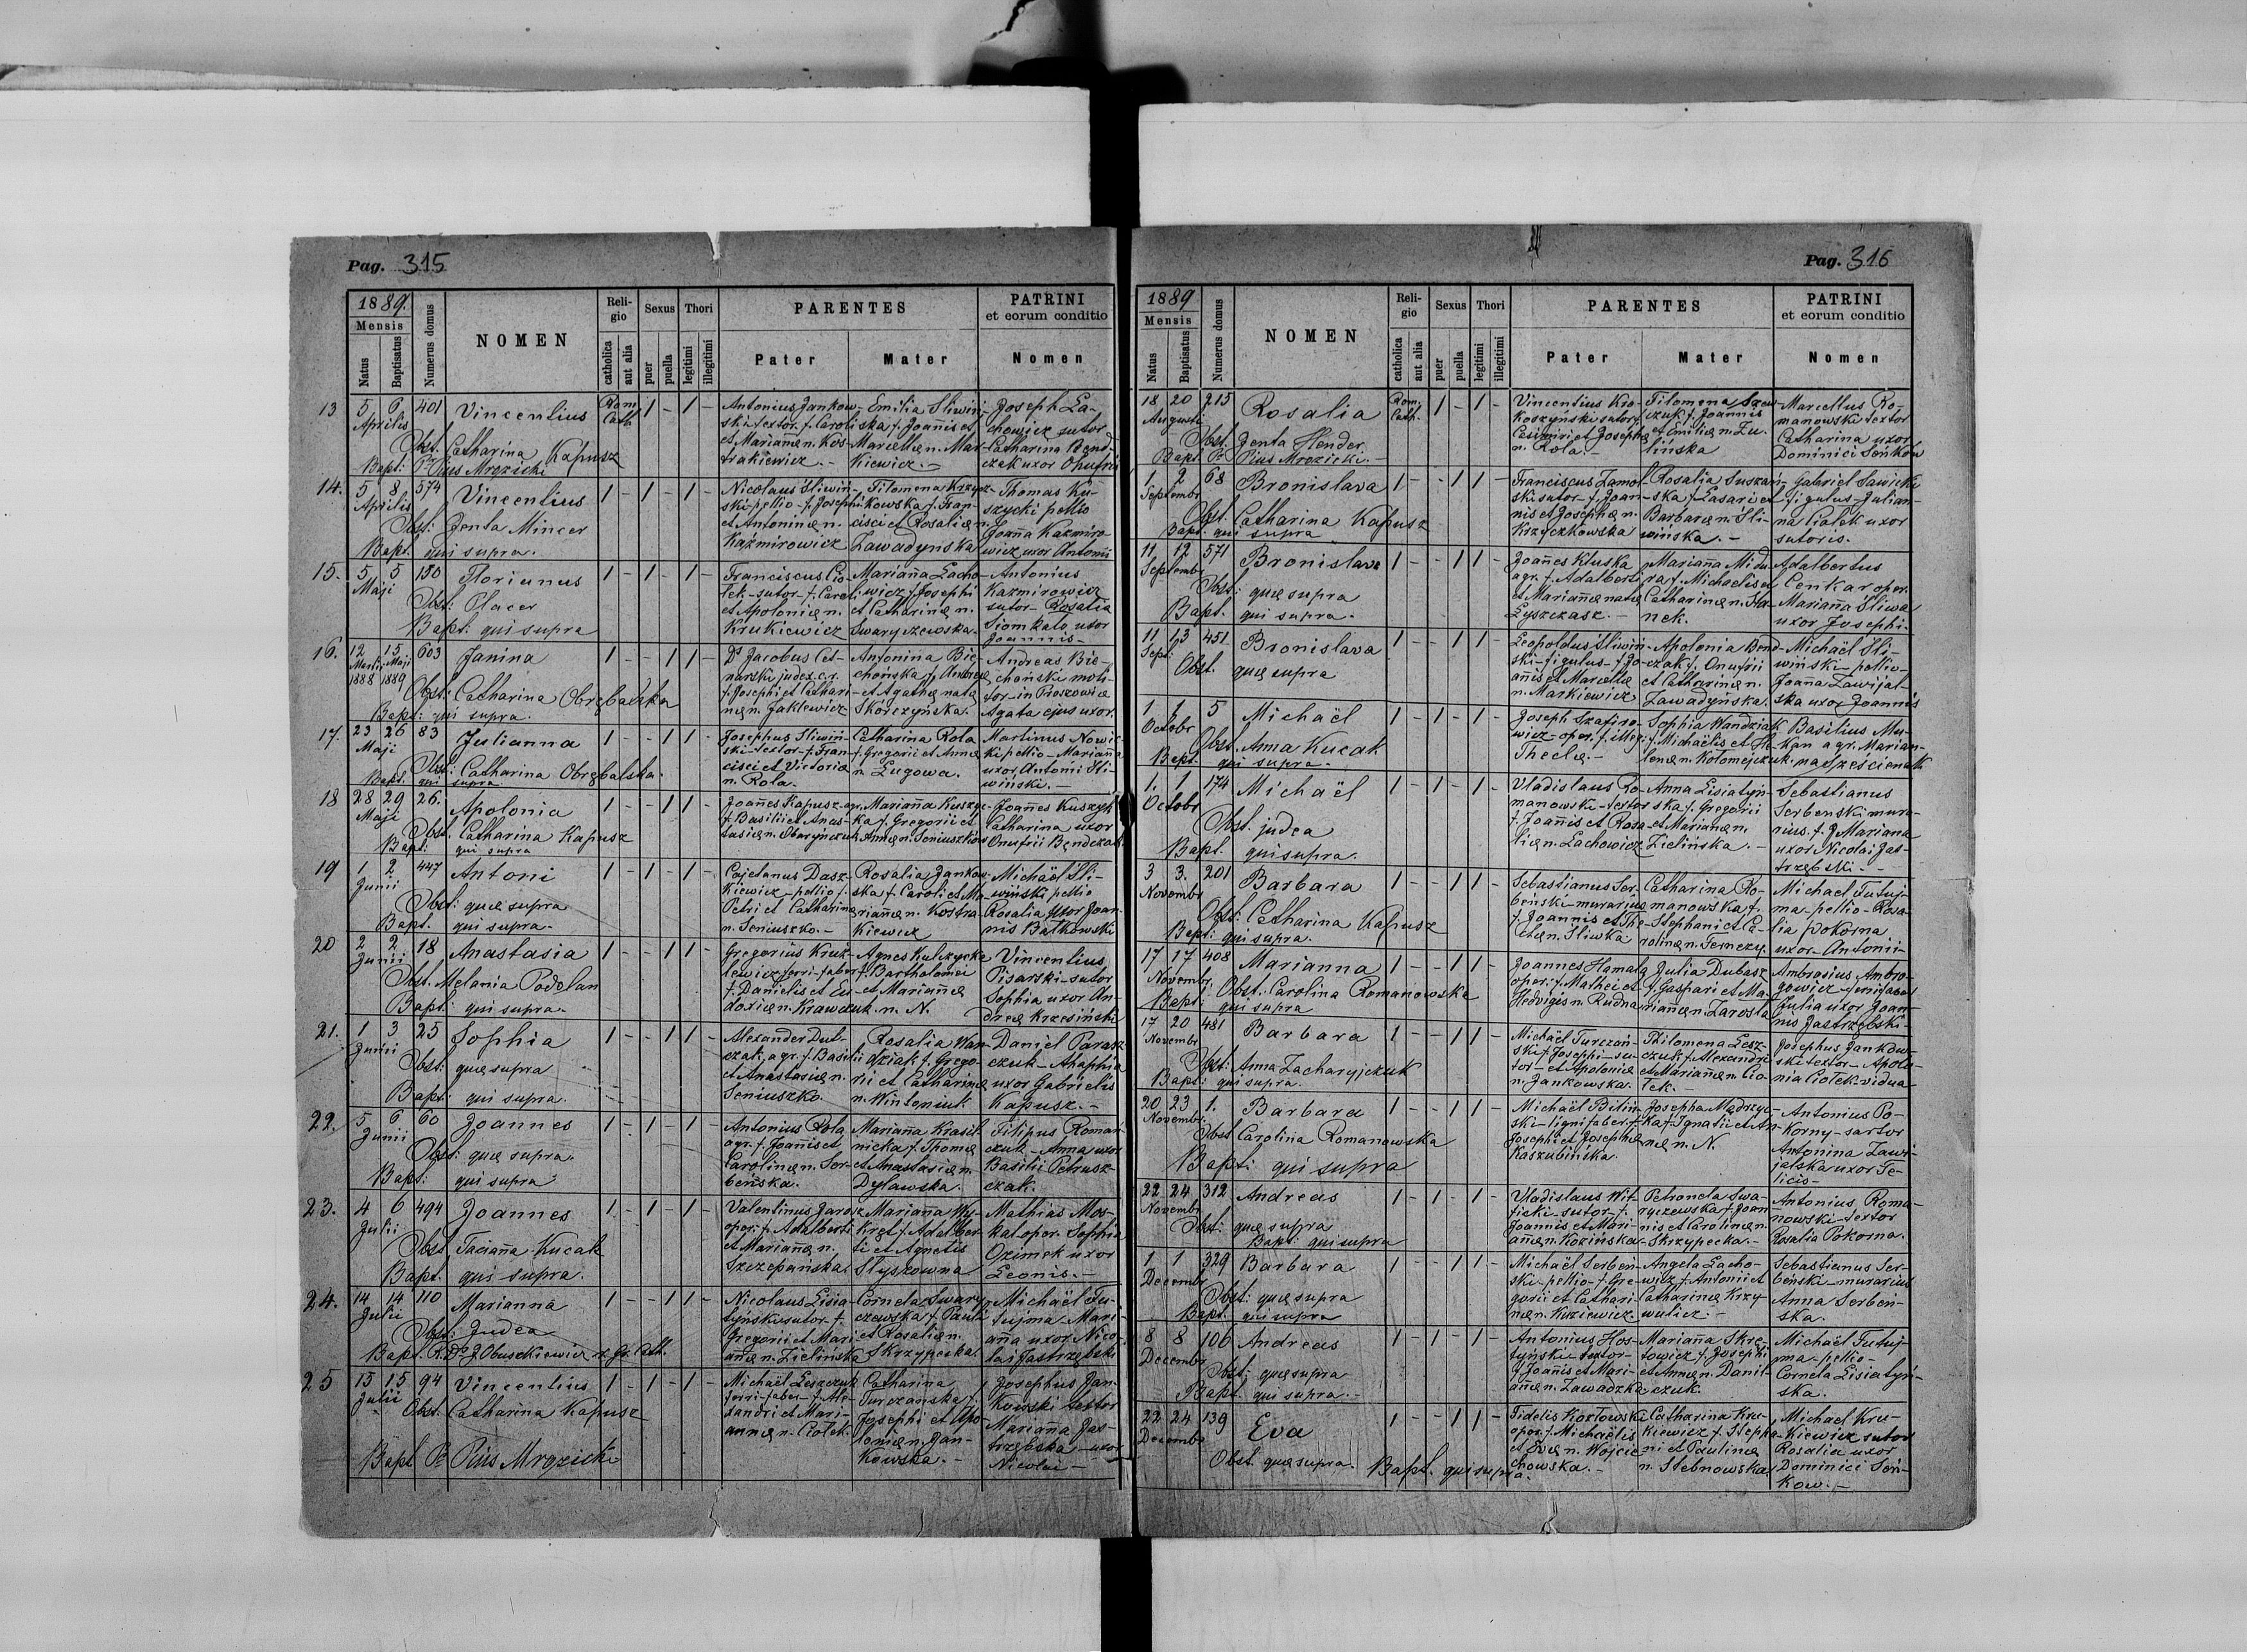 Pag. 315
1889.
Mensis
Natus
Baptisatus
Numerus domus
NOMEN
Religio
catholica
aut alia
Sexus
puer
puella
Thori
legitimi
illegitimi
PARENTES
Pater
Mater
PATRINI
et eorum conditio
Nomen
13
5 6 401 Vincentius Rom. Cath. 1 - 1 -
Aprilis
Obst. Catharina Kapusz
Bapt: Pr Pius Mrozicki
Antonius Jankow-
ski textor f. Caroli
et Mariannæ n. Kos-
trakiewicz. -
Emilia Sliwiń-
ska f. Joannis et
Marcellæ n. Mar-
kiewicz. -
Joseph La-
chowicz sutor
Catharina Bend-
czak uxor Onufrii
14.
5 8 574 Vincentius 1 - 1 - 1 -
Aprilis
Obst: Zenta Mincer
Bapt. qui supra.
Nicolaus Sliwiń-
ski pellio f. Josephi
et Antoninæ n.
Kaźmirowicz
Filomena Krzycz-
kowska f. Fran-
cisci et Rosaliæ n.
Zawadyńska
Thomas Ku-
szycki pellio
Joanna Kazmiro-
wicz uxor Antonii
15.
5 5 150 Florianus 1 - 1 - 1 -
Maji
Obst: Placer
Bapt: qui supra
Franciscus Cio-
łek - sutor - f. Caroli
et Apoloniæ n.
Krukiewicz
Marianna Lacho-
wicz f. Josephi
et Catharinæ n.
Swaryczewska.
Antonius
Kazmirowicz
sutor - Rosalia
Siomkalo uxor
Joannis -
16.
12 15 603 Janina 1 - - 1 1 -
Martii Maji
1888 1889
Obst: Catharina Obrębalska
Bapt: qui supra.
Ds Jacobus Cet-
narski judex c.r.
f. Josephi et Cathari-
næ n. Jaklewicz
Antonina Bie-
chońska f. Andreæ
et Agathæ nata
Skórczyńska.
Andreas Bie-
choński moli-
tor - in Proszowice
Agata ejus uxor.
17.
23 26 83 Julianna 1 - - 1 1 -
Maji
Obst: Catharina Obrębalska.
Bapt. qui supra
Josephus Sliwiń-
ski - textor - f. Fran-
cisci et Victoriæ
n. Rola.
Catharina Rola
f. Gregorii et Annæ
n. Ługowa.
Martinus Nowic-
ki pellio - Marianna
uxor Antoni Sli-
wiński. -
18
28 29 26. Apolonia 1 - - 1 1 -
Maji
Obst. Catharina Kapusz
Bapt: qui supra
Joannes Kapusz agr.
f. Basilii et Anas-
tasiæ n. Obaryńczuk
Marianna Kuszyc-
ka f. Gregorii et
Annæ n. Seniuszkiow
Joannes Kuszyk
Catharina uxor
Onufrii Bendczak
19
1 2 447 Antoni 1 - 1 - 1 -
Junii
Obst: quæ supra
Bapt. qui supra.
Cajetanus Dasz-
kiewicz - pellio f.
Petri et Catharinæ
n. Seniuszko. -
Rosalia Jankow-
ska f. Caroli et Ma-
riannæ n. Kostra-
kiewicz
Michaël Sli-
wiński pellio
Rosalia uxor Joan-
nis Bałkowski
20
2 2 18 Anastasia 1 - - 1 1 -
Junii
Obst. Melania Podolan
Bapt: qui supra.
Gregorius Kruk-
lewicz ferri-faber
f. Danielis et Eu-
doxiæ n. Krawczuk
Agnes Kulczycka
f. Bartholomei
et Mariannæ
n. N.
Vincentius
Pisarski - sutor
Sophia uxor An-
dreæ Krzesiński
21.
1 3 25 Sophia 1 - - 1 1 -
Junii
Obst: quæ supra
Bapt: qui supra.
Alexander Dut-
czak, agr. f. Basilii
et Anastasiæ n.
Seniuszko.
Rosalia Wan-
dziak f. Grego-
rii et Catharinæ
n. Wintoniuk.
Daniel Parasz-
czuk - Ahaphia
uxor Gabrielis
Kapusz. -
22.
5 6 60 Joannes 1 - 1 - 1 -
Junii
Obst: quæ supra.
Bapt: qui supra
Antonius Rola
agr. f. Joannis et
Carolinæ n. Ser-
beńska.
Marianna Krasil-
nicka f. Thomæ
et Anastasiæ n.
Dylawska.
Filipus Roman-
czuk - Anna uxor
Basilii Petrusz-
czak.
23.
4 6 494 Joannes 1 - 1 - 1 -
Julii
Obst Taciana Kucak
Bapt. qui supra.
Valentinus Jarosz
oper. f. Adalberti
et Mariannæ n.
Szczepańska.
Marianna Wy-
kręt f. Adalber-
ti et Agnetis
Słyszowna
Mathias Mos-
kal oper. Sophia
Ozimek uxor
Leonis. -
24.
14 14 110 Marianna 1 - - 1 1 -
Julii
Obst: Judea
Bapt. R. Ds J. Obuszkiewicz r. gr. Cath.
Nicolaus Lisia-
tyński sutor f.
Gregorii et Mari-
annæ n. Zielińska
Cornela Swary-
czewska f. Pauli
et Rosaliæ n.
Skrzypecka.
Michaël Fu-
tujma Mari-
anna uxor Nico-
lai Jastrzębski
25
15 15 94 Vincentius 1 - 1 - 1 -
Julii
Obst. Catharina Kapusz
Bapt Pr Pius Mrozicki
Michaël Leszczuk
ferri-faber - f. Ale-
xandri et Mari-
annæ n. Ciołek.
Catharina
Turczańska f.
Josephi et Apo-
loniæ n. Jan-
kowska. -
Josephus Jan-
kowski textor
Marianna Jas-
trzębska - uxor
Nicolai -
Pag. 316
1889
Mensis
Natus
Baptisatus
Numerus domus
NOMEN
Religio
catholica
aut alia
Sexus
puer
puella
Thori
legitimi
illegitimi
PARENTES
Pater
Mater
PATRINI
et eorum conditio
Nomen
18 20 215 Rosalia Rom. Cath. 1 - 1 -
Augusti
Obst. Zenta Hender
Bapt. Pr Pius Mrozicki. -
Vincentius Kro-
koszyński sutor f.
Casimiri et Josephæ
n. Rola. -
Filomena Szew-
czuk f. Joannis
et Emiliæ n. Zu-
lińska
Marcellus Ro-
manowski textor
Catharina uxor
Dominici Seńkow
1 2 68 Bronislava 1 - - 1 1 -
Septembr
Obst. Catharina Kapusz
Bapt. qui supra
Franciscus Zamoj-
ski sutor - f. Joan-
nis et Josephæ n.
Krzyczkowska
Rosalia Suszań-
ska f. Lasari et
Barbaræ n. Śli-
wińska. -
Gabriel Sawicki
figulus - Julian-
na Ciołek uxor
sutoris.
11 12 571 Bronislava 1 - - 1 1 -
Septembr
Obst: quæ supra
Bapt. qui supra.
Joannes Kluska
agr. f. Adalberti
et Mariannæ natæ
Łyszczasz. -
Marianna Midu-
ra f. Michaelis et
Catharinæ n. Ho-
nek.
Adalbertus
Cenkar oper.
Marianna Śliwa
uxor Josephi.
11 13 451 Bronislava 1 - - 1 1 -
Sept:
Obst. quæ supra
Leopoldus Sliwiń-
ski - figulus - f. Jo-
annis et Marcellæ
n. Markiewicz
Apolonia Bend-
czak f. Onufrii
et Catharinæ n.
Zawadyńska.
Michaël Sli-
wiński - pellio -
Joanna Zawijal-
ska uxor Joannis
1 1 5 Michaël 1 - 1 - 1 -
Octobr
Obst. Anna Kucak
Bapt. qui supra.
Joseph Szafiro-
wicz - oper. f. illeg.
Theclæ. -
Sophia Wandziak
f. Michaëlis et He-
lenæ n. Kołomejczuk.
Basilius Mu-
kan agr. Marian-
na
1. 1. 174 Michaël 1 - 1 - 1 -
Octobr
Obst. judea
Bapt. qui supra.
Vladislaus Ro-
manowski - textor
f. Joannis et Rosa-
liæ n. Lachowicz
Anna Lisiatyn-
ska f. Gregorii
et Mariannæ n.
Zielińska. -
Sebastianus
Serbenski mura-
rius. f. Mariana
uxor Nicolai Jas-
trzębski. -
3 3. 201 Barbara 1 - - 1 1 -
Novembr
Obst: Catharina Kapusz
Bapt: qui supra.
Sebastianus Ser-
beński - murarius
f. Joannis et The-
clæ n. Sliwka
Catharina Ro-
manowska f.
Stephani et Ca-
rolinæ n. Ternczy.
Michael Futuj-
ma - pellio - Rosa-
lia Pokorna
uxor - Antonii -
17 17 408 Marianna 1 - - 1 1 -
Novembr.
Obst. Carolina Romanowska
Bapt: qui supra
Joannes Hamala
oper. f. Mathei et
Hedvigis n. Rudna
Julia Dubasz
f. Gaspari et Ma-
riannæ n. Zarosla
Ambrosius Ambro-
gowicz ferrifaber
Julia uxor Joan-
nis Jastrzębski -
17 20 481 Barbara 1 - - 1 1 -
Novembr
Obst: Anna Zacharyjczuk
Bapt: qui supra.
Michaël Turczań-
ski f. Josephi - su-
tor - et Apoloniæ
n. Jankowska.
Philomena Lesz-
czuk f. Alexandri
et Mariannæ n. Cio-
łek. -
Josephus Jankow-
ski textor - Apolo-
nia Ciołek vidua
20 23 1. Barbara 1 - - 1 1 -
Novembr.
Obst Carolina Romanowska
Bapt: qui supra
Michaël Biliń-
ski - lignifaber. f.
Josephi et Josephæ
Kaszubińska.
Josepha Mądrzyc-
ka f. Ignatii et An-
næ n. N.
Antonius Po-
korny - sartor
Antonina Zawi-
jalska uxor Fe-
licis -
22 24 312 Andreas 1 - 1 - 1 -
Novembr
Obst: quæ supra
Bapt: qui supra
Vladislaus Wit-
ficki - sutor - f.
Joannis et Mari-
annæ n. Kozińska
Petronela Swa-
ryczewska f. Joan-
nis et Carolinæ n.
Skrzypecka. -
Antonius Roma-
nowski - textor
Rosalia Pokorna.
1 1 329 Barbara 1 - - 1 1 -
Decembr
Obst: quæ supra
Bapt: qui supra
Michaël Serbeń-
ski - pellio - f. Gre-
gorii et Cathari-
næ n. Kuziewicz.
Angela Lacho-
wicz f. Antonii et
Catharinæ Krzy-
wulicz. -
Sebastianus Ser-
beński - murarius
Anna Serbeń-
ska.
8 8 106 Andreas 1 - 1 - 1 -
Decembr
Obst: quæ supra
Bapt. qui supra. -
Antonius Hos-
tyński - textor -
f. Joannis et Mari-
annæ n. Zawadzka
Marianna Skre-
towicz f. Josephi
et Annæ n. Danil-
czuk.
Michaël Futuj-
ma - pellio -
Cornela Lisiatyń-
ska.
22 24 139 Eva 1 - - 1 1 -
Decembr
Obst. quæ supra. Bapt. qui supra.
Fidelis Kozłowski
oper. f. Michaëlis
et Evæ n. Wojcie-
chowska. -
Catharina Kru-
kiewicz f. Stepha-
ni et Paulinæ
n. Stebnowska
Michael Kru-
kiewicz sutor
Rosalia uxor
Dominici Señ-
kow. -